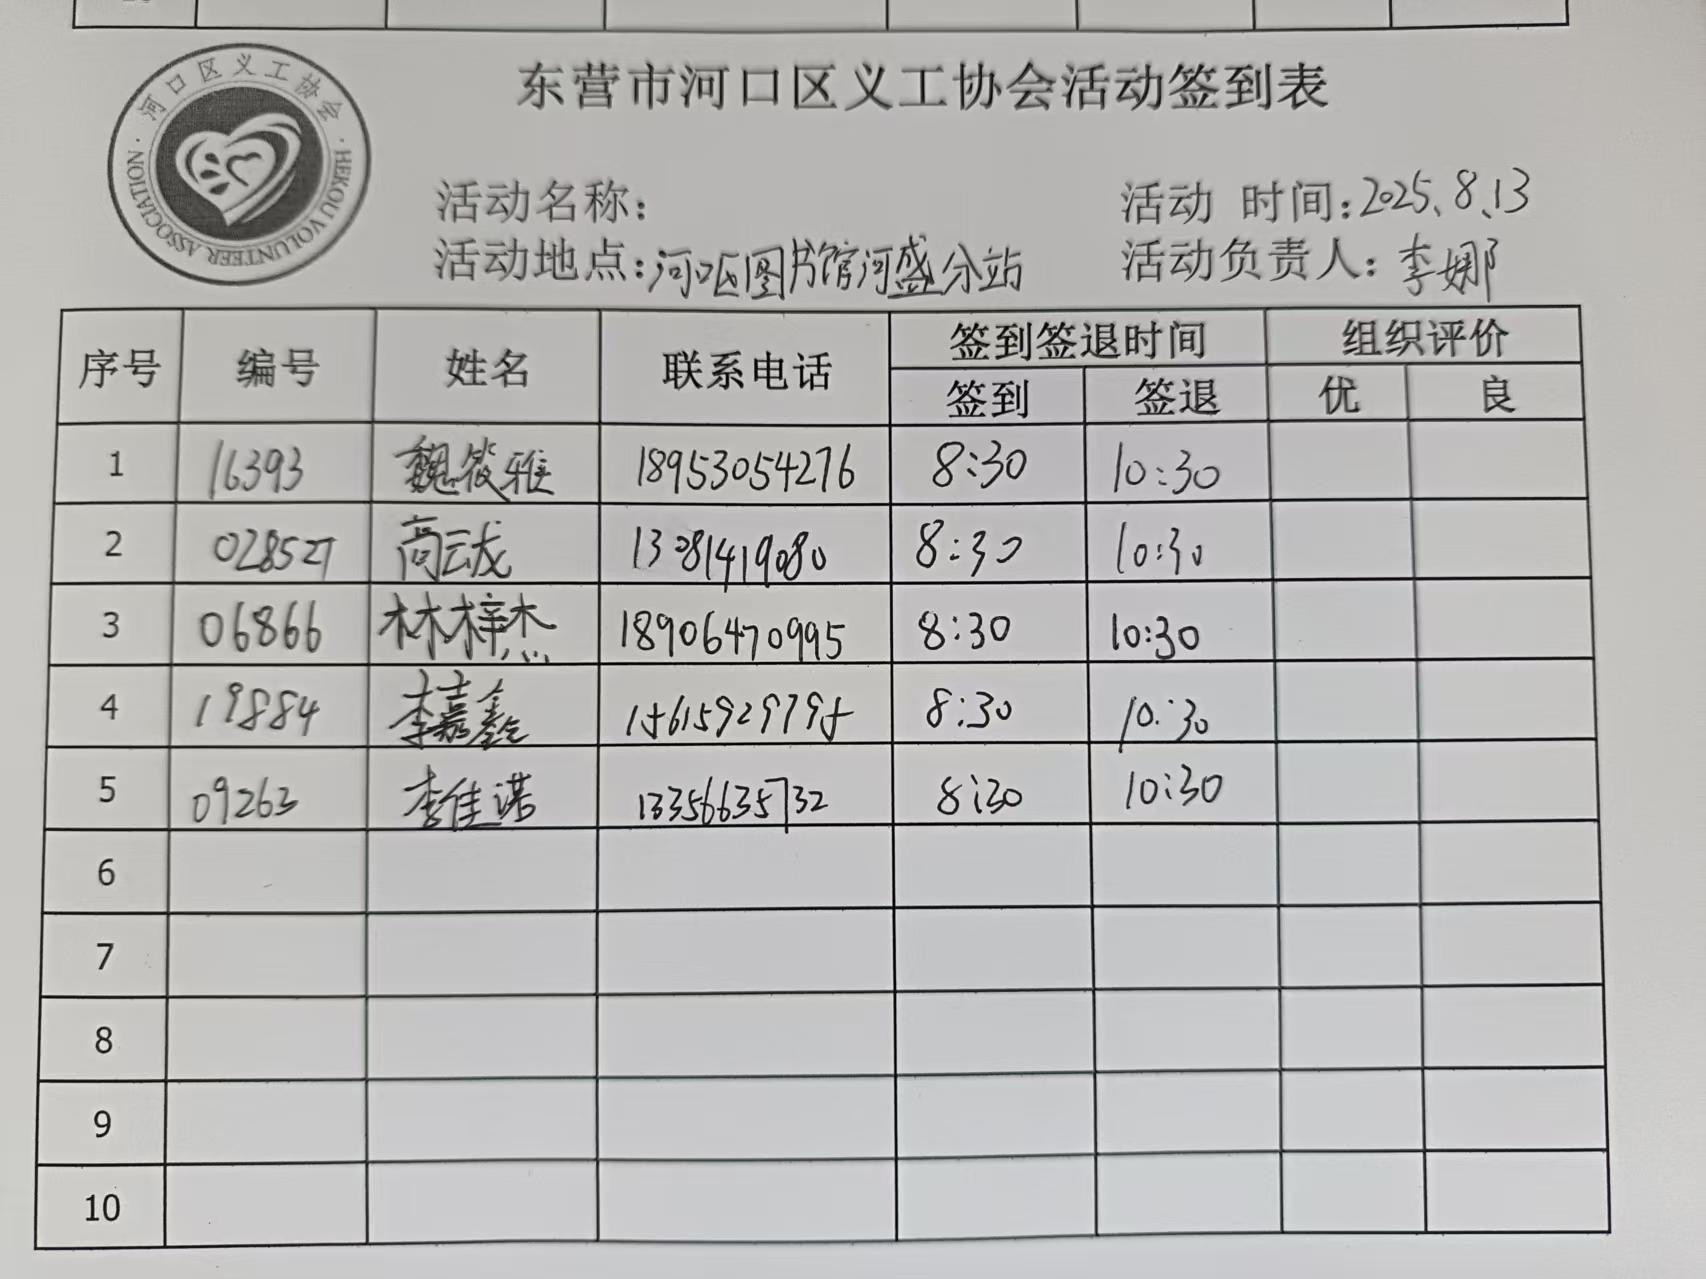 东营市河口区义工协会活动签到表
·河口区义工协会·
HEKOU VOLUNTEER ASSOCIATION
活动名称：
活动 时间：2025.8.13
活动地点：河口区图书馆河盛分站
活动负责人：李娜
序号 编号 姓名 联系电话 签到签退时间 组织评价
签到 签退 优 良
1 16393 魏筱雅 18953054276 8:30 10:30
2 028527 高云龙 13081419080 8:30 10:30
3 06866 林梓杰 18906470995 8:30 10:30
4 19884 李嘉鑫 15615929795 8:30 10:30
5 09263 李佳诺 13356635732 8:30 10:30
6
7
8
9
10